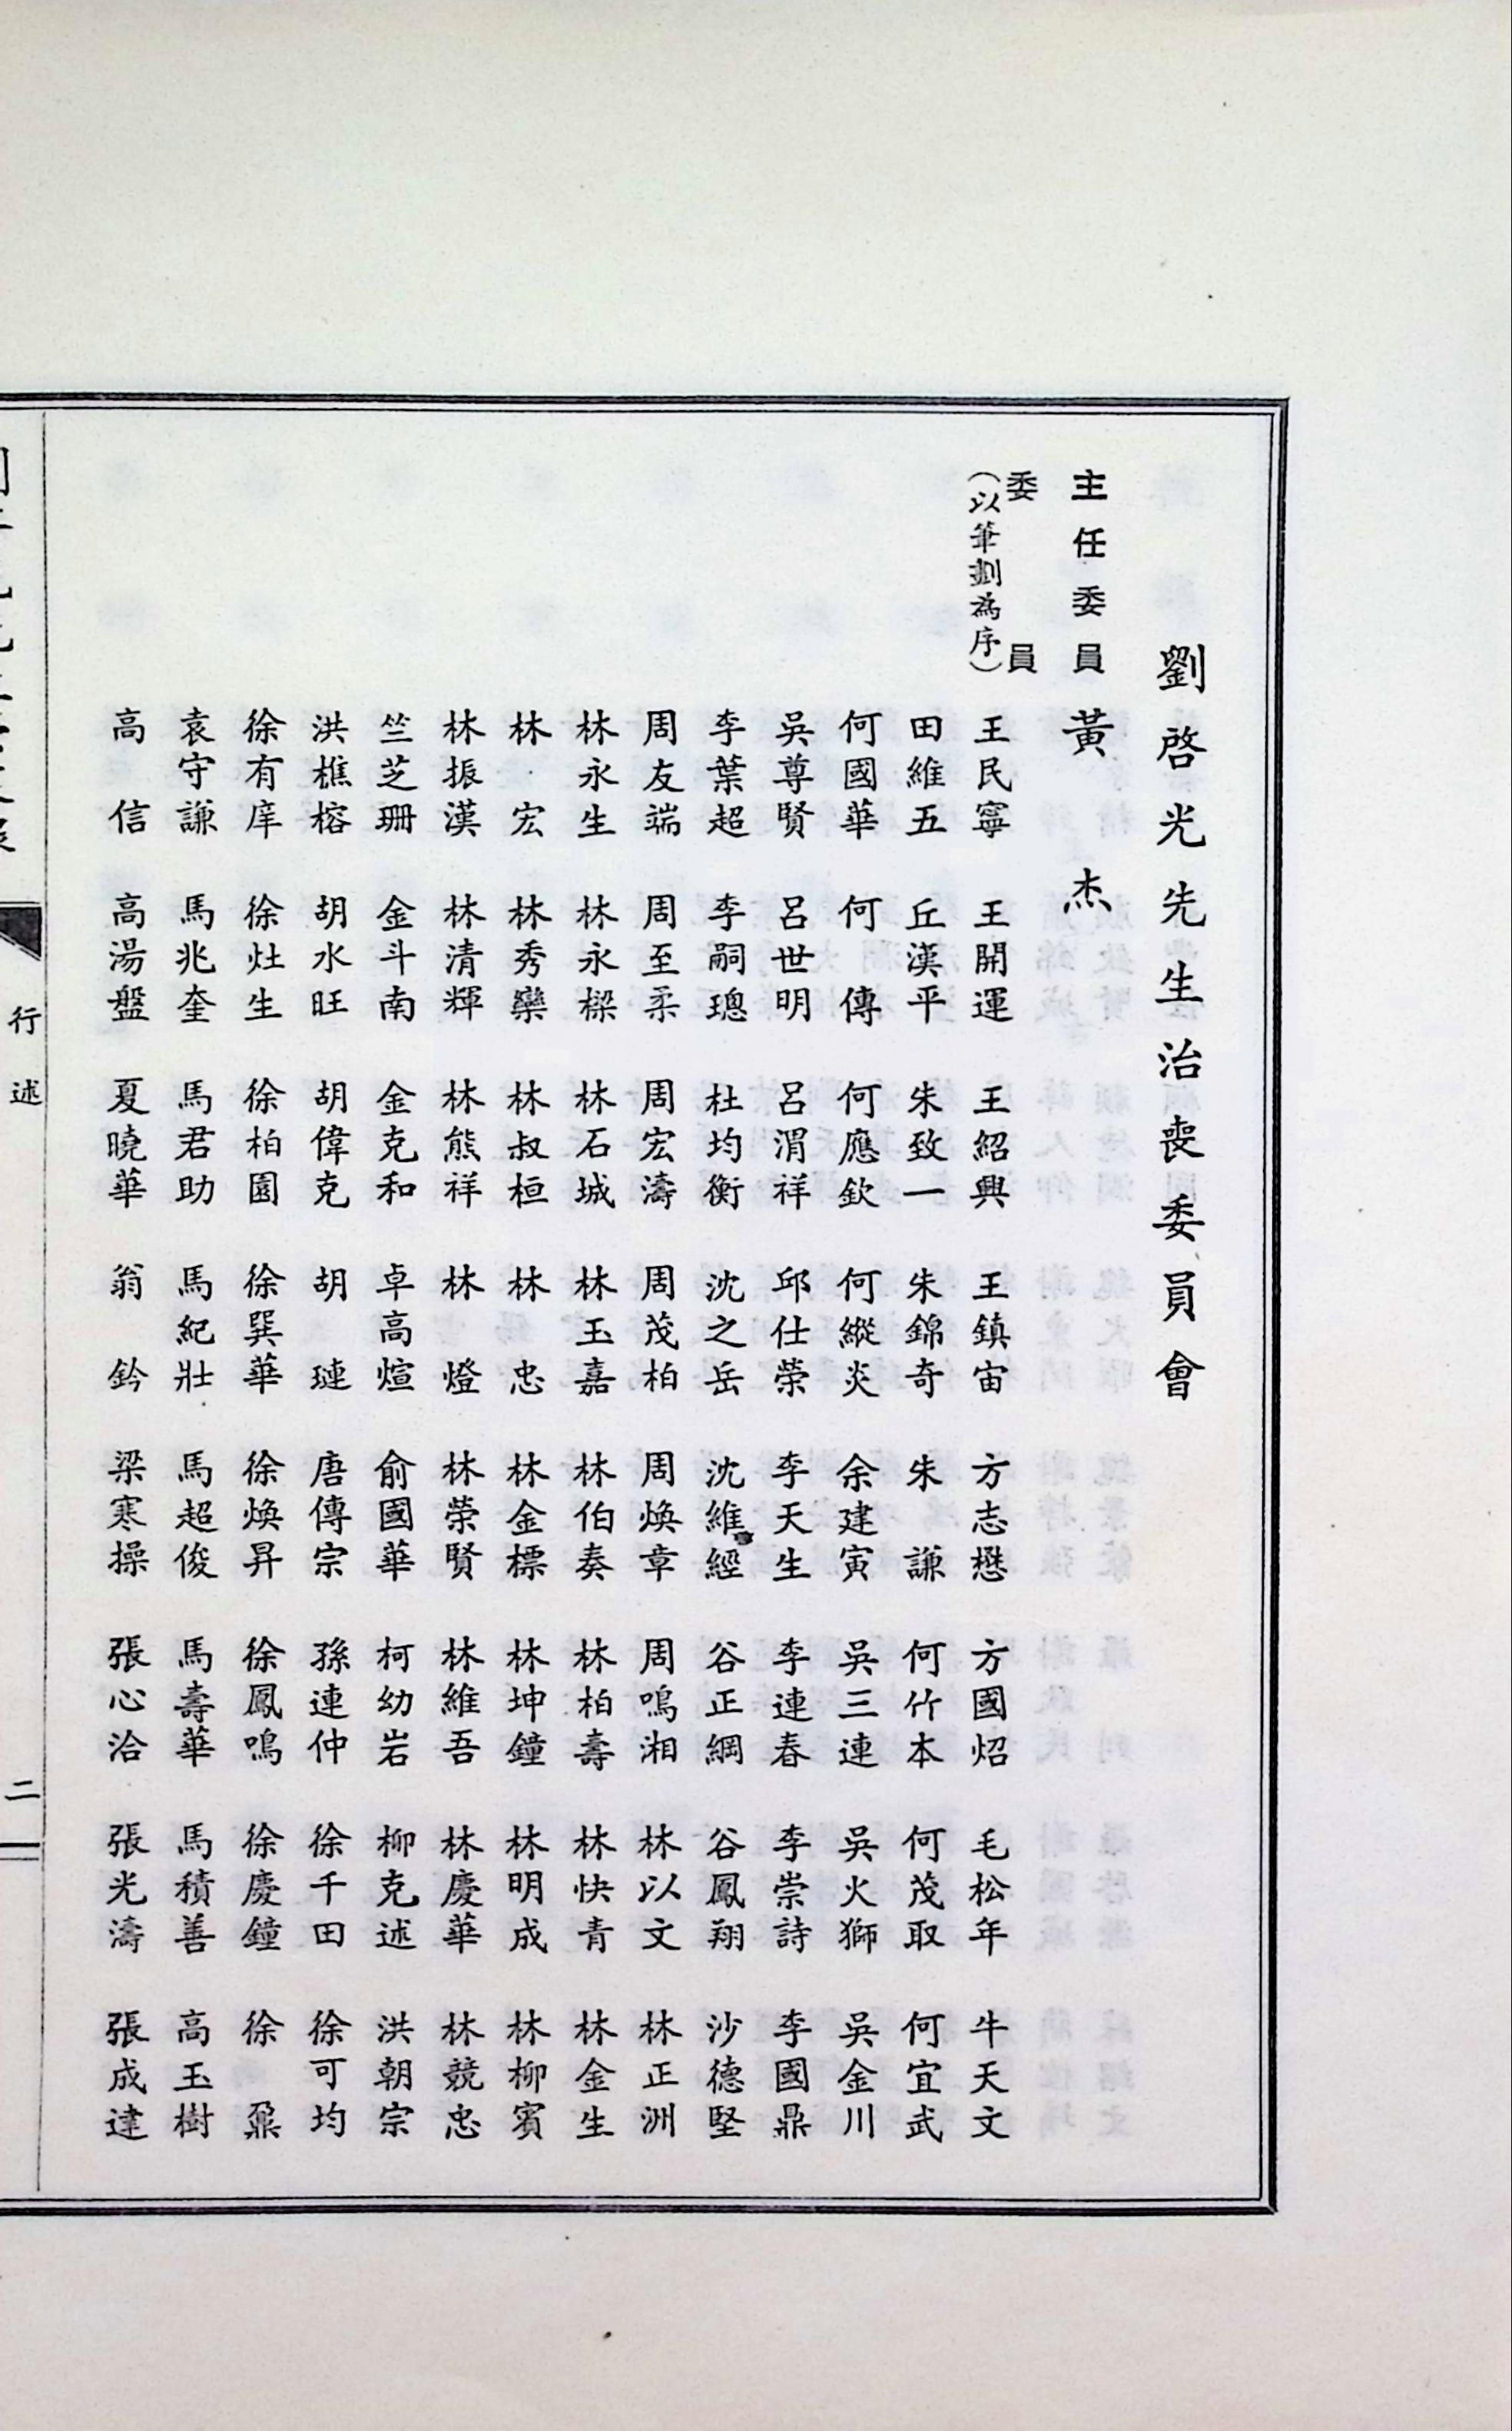 劉啓光先生治喪委員會
主任委員 黃 杰
委 員
（以筆劃為序）
王民寧 王開運 王紹興 王鎮宙 方志懋 方國炤 毛松年 牛天文
田維五 丘漢平 朱致一 朱錦奇 朱 謙 何竹本 何茂取 何宜武
何國華 何 傳 何應欽 何縱炎 余建寅 吳三連 吳火獅 吳金川
吳尊賢 呂世明 呂渭祥 邱仕荣 李天生 李連春 李崇詩 李國鼎
李葉超 李嗣璁 杜均衡 沈之岳 沈維經 谷正綱 谷鳳翔 沙德堅
周友端 周至柔 周宏濤 周茂柏 周煥章 周鳴湘 林以文 林正洲
林永生 林永樑 林石城 林玉嘉 林伯奏 林柏壽 林快青 林金生
林 宏 林秀欒 林叔桓 林 忠 林金標 林坤鐘 林明成 林柳賓
林振漢 林清輝 林熊祥 林 燈 林荣賢 林維吾 林慶華 林競忠
竺芝珊 金斗南 金克和 卓高煊 俞國華 柯幼岩 柳克述 洪朝宗
洪樵榕 胡水旺 胡偉克 胡 璉 唐傳宗 孫連仲 徐千田 徐可均
徐有庠 徐灶生 徐柏園 徐巽華 徐煥昇 徐鳳鳴 徐慶鐘 徐 鼐
袁守謙 馬兆奎 馬君助 馬紀壯 馬超俊 馬壽華 馬積善 高玉樹
高 信 高湯盤 夏曉華 翁 鈐 梁寒操 張心洽 張光濤 張成達
行述
二